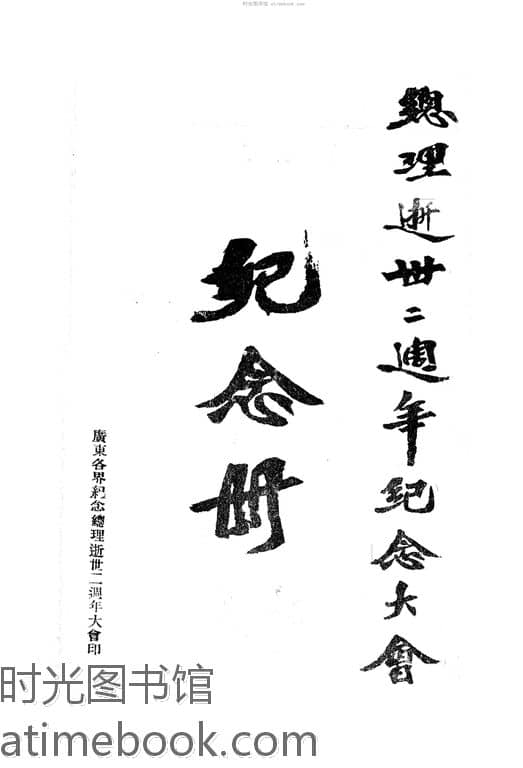 时光图书馆 atimebook.com
總理逝世二週年紀念大會
紀念冊
廣東各界紀念總理逝世二週年大會印
时光图书馆
atimebook.com